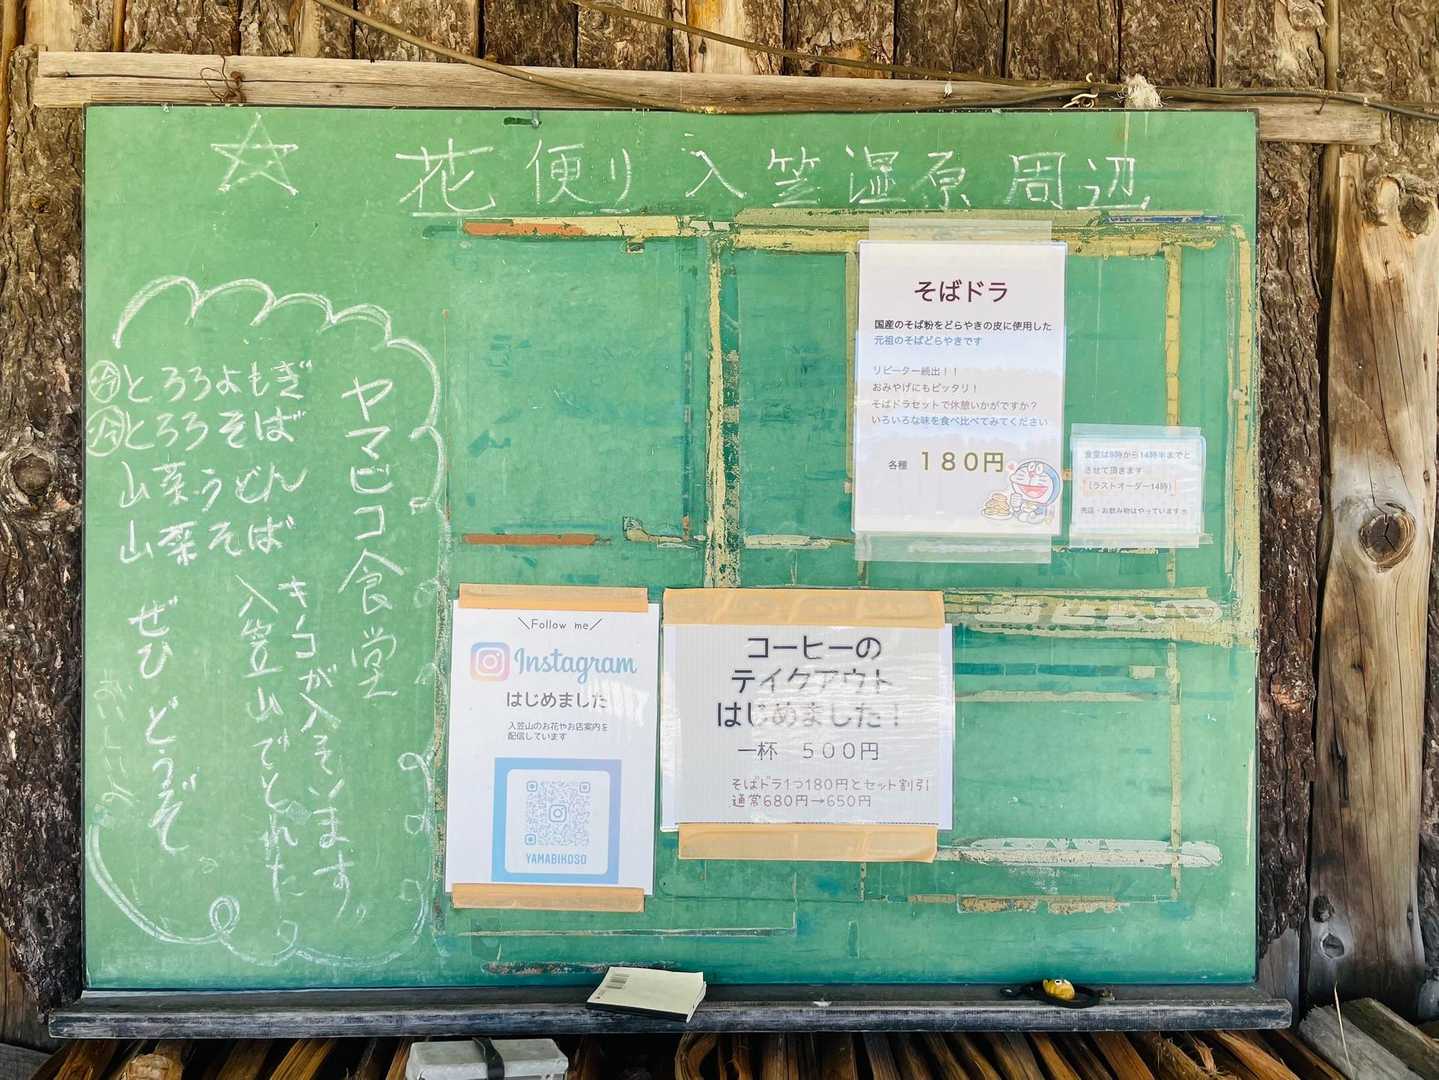 ☆ 花便り 入笠湿原周辺
ヤマビコ食堂
冷とろろよもぎ
冷とろろそば
山菜うどん
山菜そば
キノコが入っています。
入笠山でとれた
ぜひ どうぞ
そばドラ
国産のそば粉をどらやきの皮に使用した
元祖のそばどらやきです
リピーター続出！！
おみやげにもピッタリ！
そばドラセットで休憩いかがですか？
いろいろな味を食べ比べてみてください
各種 １８０円
食堂は9時から14時半までと
させて頂きます
（ラストオーダー14時）
売店・お飲み物はやっています
＼Follow me／
Instagram
はじめました
入笠山のお花やお店案内を
配信しています
YAMABIKOSO
コーヒーの
テイクアウト
はじめました！
一杯 ５００円
そばドラ1つ180円とセット割引
通常680円→650円